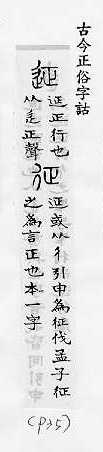 古今正俗字詁
𨒌
𨒌正行也
从辵正聲
征
𨒌或从彳引申為征伐孟子征
之為言正也本一字
(P35)